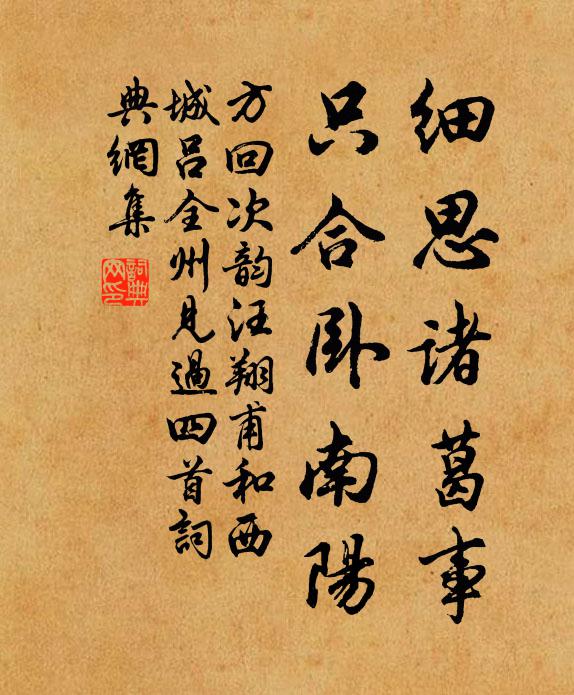 细思诸葛事
只合卧南陽
方回次韵汪翔甫和西
城吕全州見過四首詞
典網集
詞典
网印